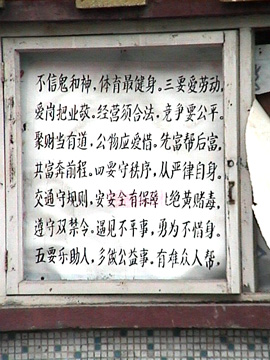 不信鬼和神，体育最健身。三要爱劳动。
爱岗把业敬。经营须合法，竞争要公平。
聚财当有道，公物应爱惜。先富帮后富，
共富奔前程。四要守秩序，从严律自身。
交通守规则，安全有保障，绝黄赌毒，
遵守双禁令。遇见不平事，勇为不惜身。
五要乐助人，多做公益事。有难众人帮，